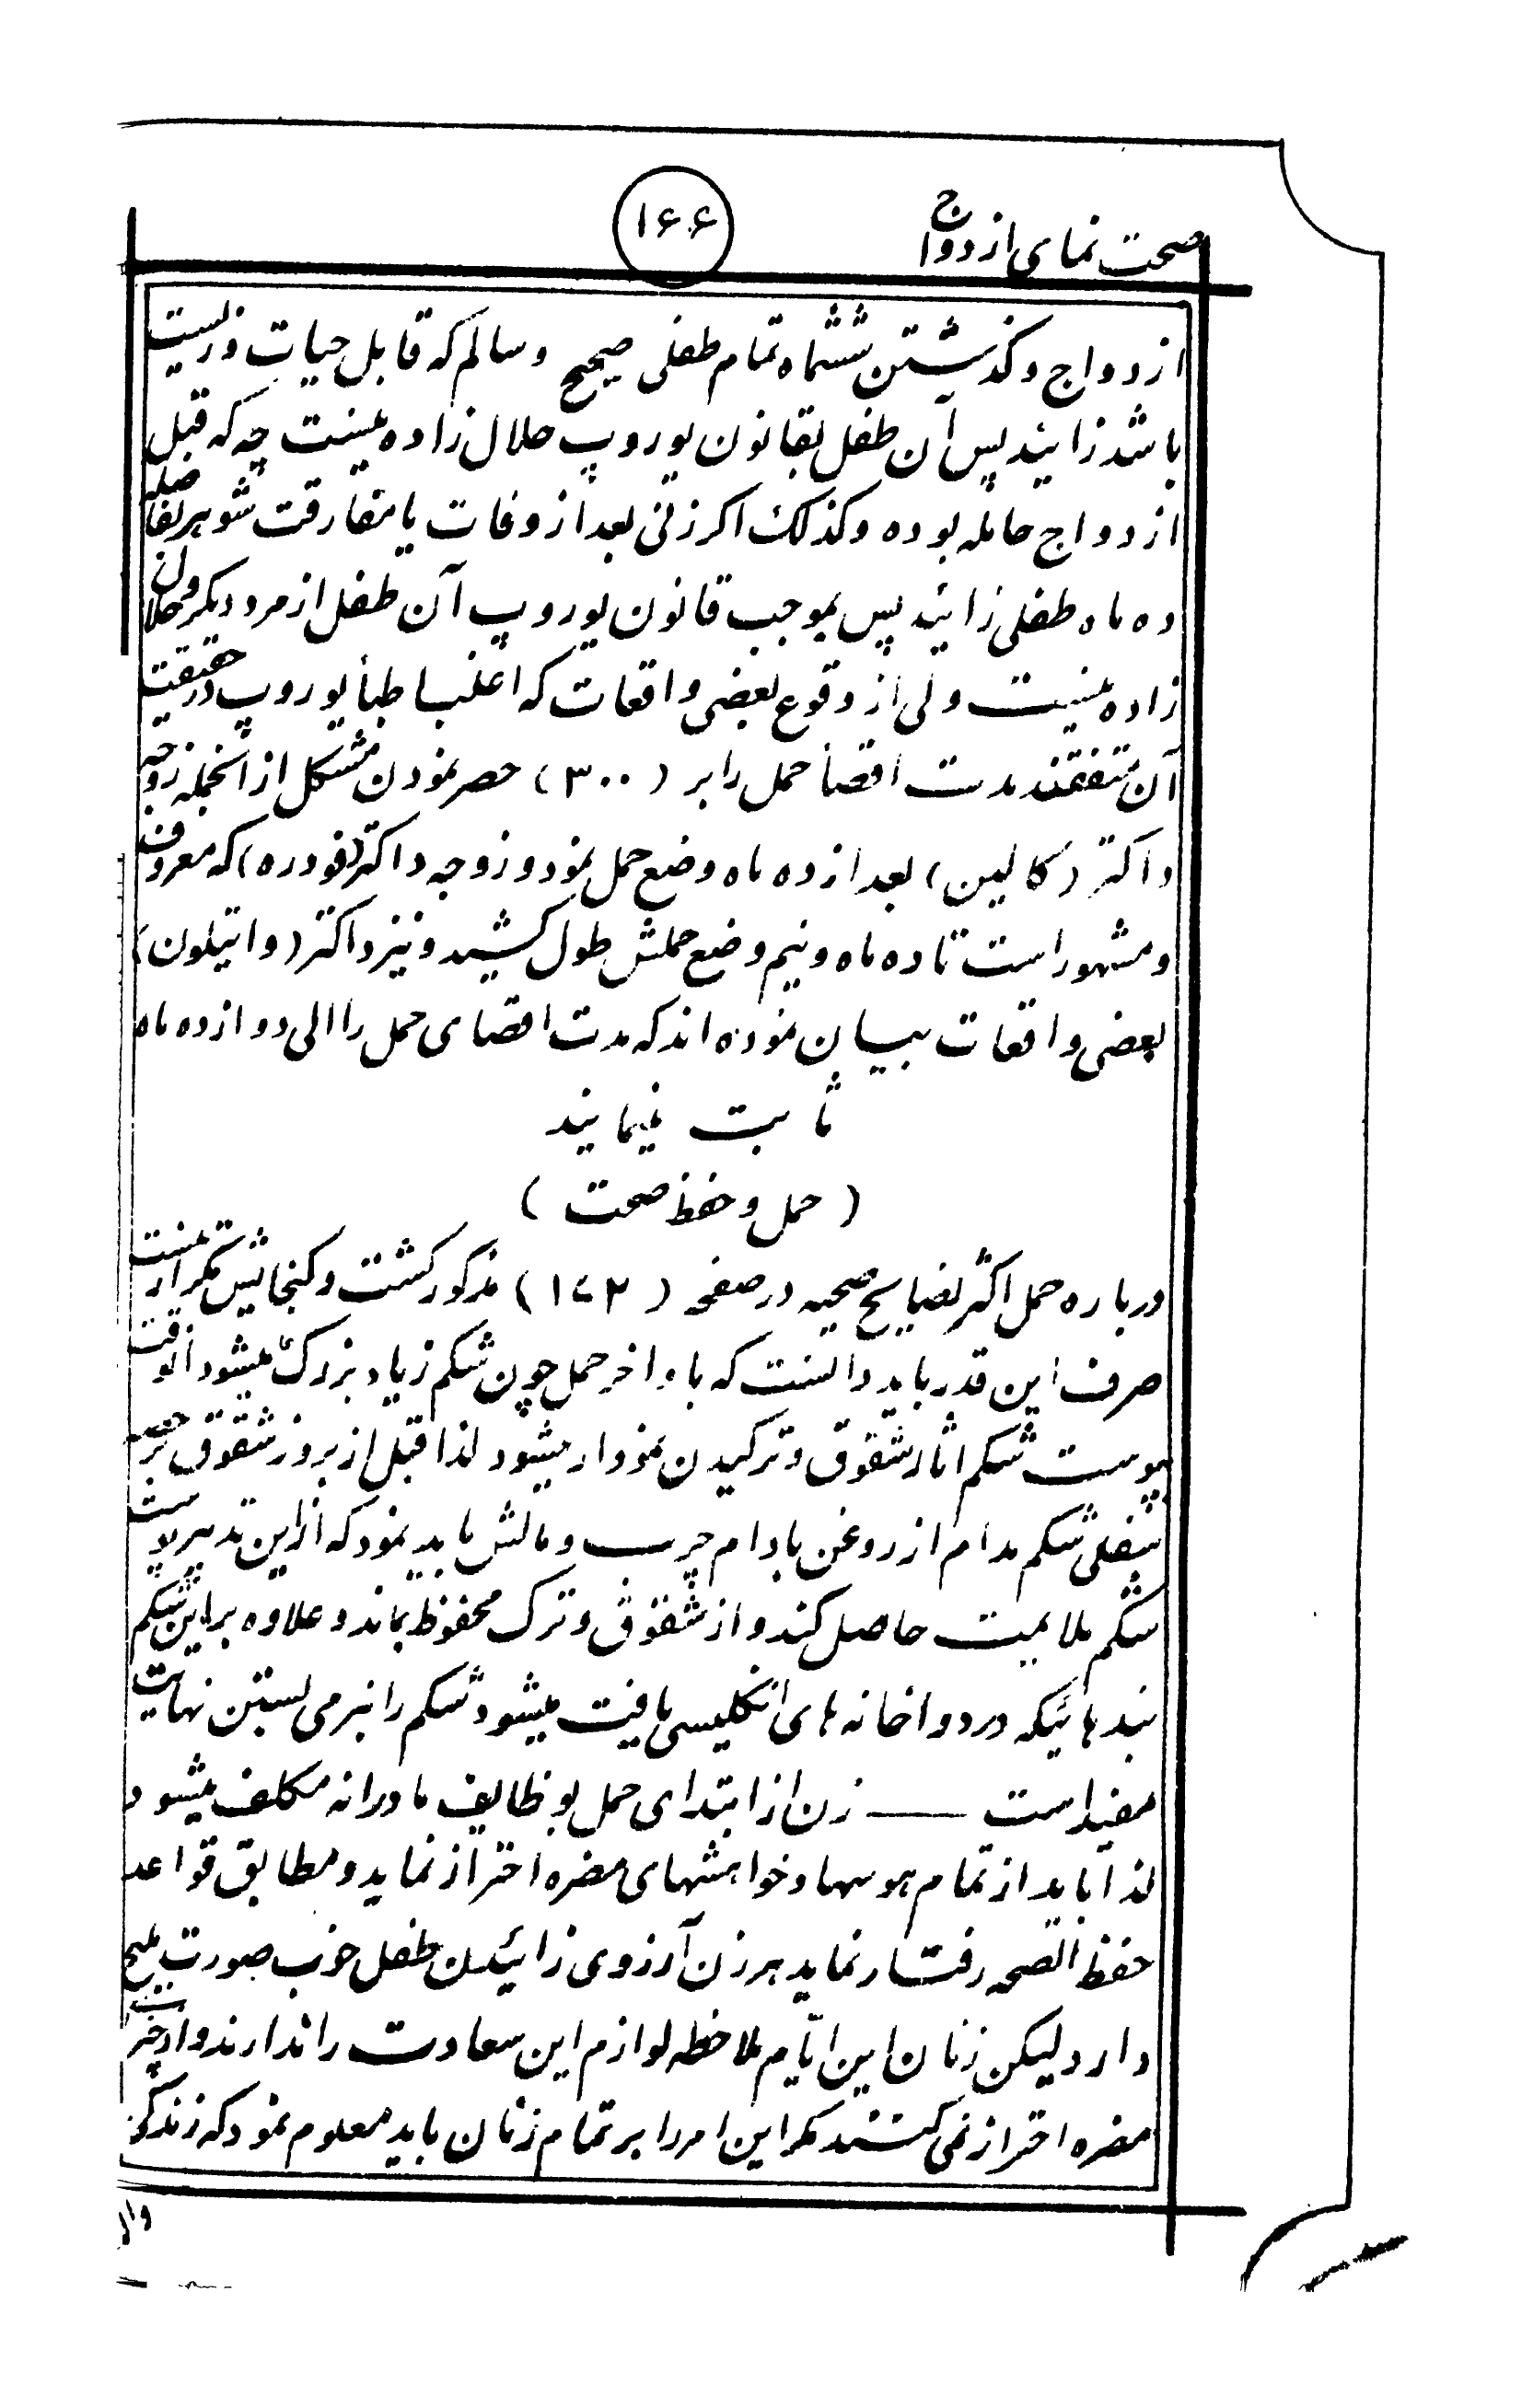 صحت نمای ازدواج
۱۶۶
ازدواج و گذشتن ششماه تمام طفلی صحیح و سالم که قابل حیات و زیست
باشد زایند پس آن طفل بقانون یوروپ حلال زاده نیست چه که قبل
ازدواج حامله بوده و کذلک اکر زنی بعد از وفات یا مفارقت شوهر بفاصله
ده ماه طفلی زایند پس بموجب قانون یوروپ آن طفل از مرد دیکر و حلال
زاده نیست ولی از وقوع بعضی واقعات که اغلب اطبأ یوروپ در حقیقت
آن متفقند مدت اقصأ حمل را بر (۳۰۰) حصر نمودن مشکل از انجمله زوجه
داکتر (کالین) بعد از ده ماه وضع حمل نمود و زوجه داکتر (فودره) که معروف
و مشهور است تا ده ماه و نیم وضع حملش طول کشید و نیز داکتر (واتیلون)
بعضی واقعات بیان نموده اند که مدت اقصای حمل را الی دوازده ماه
ثابت مینمایند
(حمل و حفظ صحت)
درباره حمل اکثر نصایح صحیه در صفحه (۱۷۲) مذکور کشت و کنجایش تکرار نیست
صرف این قدر باید دانست که باواخر حمل چون شکم زیاد بزرک میشود انوقت
پوست شکم اثار شقوق و ترکیدن نمودار میشود لذا قبل از بروز شقوق
سفلی شکم مدام از روغن بادام چرب و مالش باید نمود که ازاین تدبیر پوست
شکم ملایمیت حاصل کند و از شقوق و ترک محفوظ بماند و علاوه براین شکم
بندهائیکه در دواخانه های انکلیسی یافت میشود شکم را بنرمی بستن نهایت
مفید است — زن از ابتدای حمل بوظایف مادرانه مکلف میشود
لذا باید از تمام هوسها و خواهشهای مضره احتراز نماید و مطابق قواعد
حفظ الصحه رفتار نماید هر زن آرزوی زائیدن طفل خوب صورت ملیح
دارد لیکن زنان این ایّام ملاحظه لوازم این سعادت را ندارند و از
مضره احتراز نمی کنند مکر این امر را بر تمام زنان باید معلوم نمود که زندکی